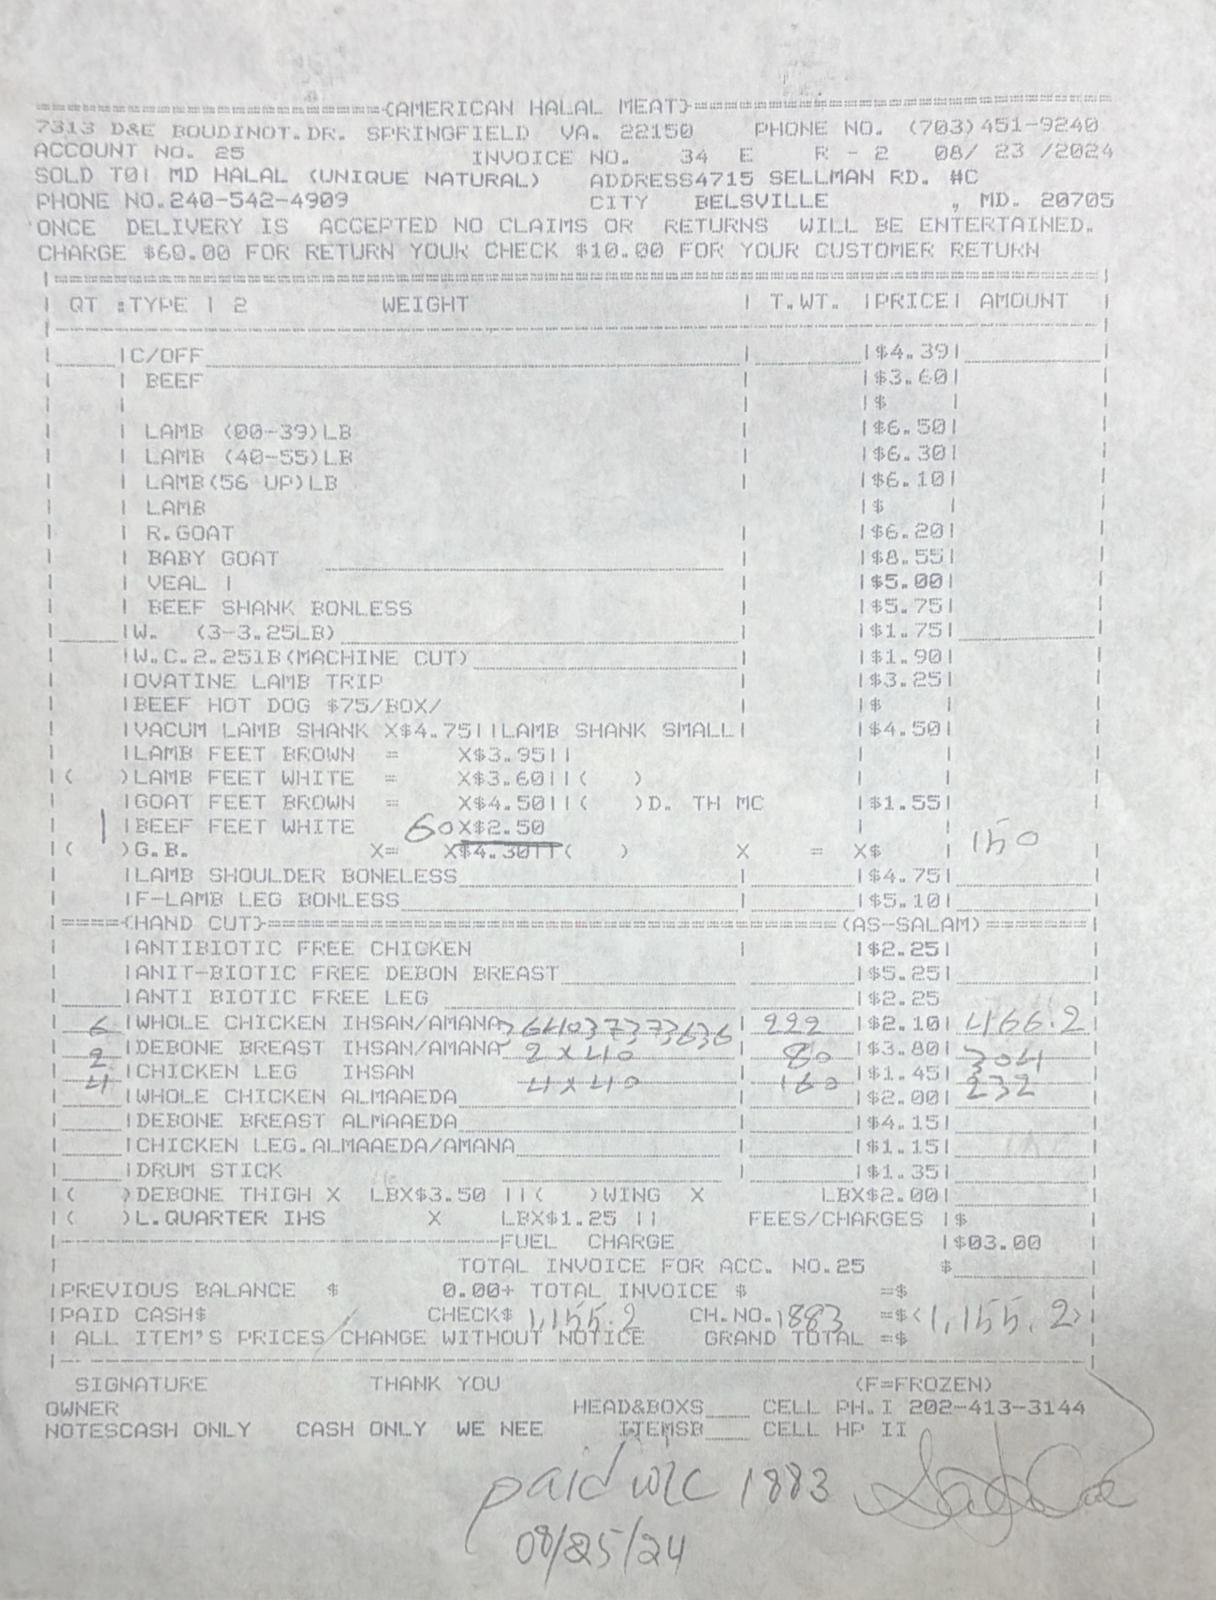 =(AMERICAN HALAL MEAT)=
7313 D&E BOUDINOT.DR. SPRINGFIELD VA. 22150 PHONE NO. (703)451-9240
ACCOUNT NO. 25 INVOICE NO. 34 E R - 2 08/ 23 /2024
SOLD TO| MD HALAL (UNIQUE NATURAL) ADDRESS4715 SELLMAN RD. #C
PHONE NO.240-542-4909 CITY BELSVILLE , MD. 20705
ONCE DELIVERY IS ACCEPTED NO CLAIMS OR RETURNS WILL BE ENTERTAINED.
CHARGE $60.00 FOR RETURN YOUR CHECK $10.00 FOR YOUR CUSTOMER RETURN
| QT :TYPE | 2 WEIGHT | T.WT. |PRICE| AMOUNT
| |C/OFF | |$4.39|
| | BEEF | |$3.60| |
| | | |$ | |
| | LAMB (00-39)LB | |$6.50| |
| | LAMB (40-55)LB | |$6.30| |
| | LAMB(56 UP)LB | |$6.10| |
| | LAMB |$ | |
| | R.GOAT | |$6.20| |
| | BABY GOAT | |$8.55| |
| | VEAL | | |$5.00| |
| | BEEF SHANK BONLESS | |$5.75| |
| |W. (3-3.25LB) | |$1.75| |
|W.C.2.25lB(MACHINE CUT) | |$1.90| |
|OVATINE LAMB TRIP |$3.25| |
|BEEF HOT DOG $75/BOX/ |$ | |
|VACUM LAMB SHANK X$4.75||LAMB SHANK SMALL| |$4.50| |
|LAMB FEET BROWN = X$3.95|| | |
|( )LAMB FEET WHITE = X$3.60||( ) | | |
|GOAT FEET BROWN = X$4.50||( )D. TH MC |$1.55| |
1 |BEEF FEET WHITE 60 X$2.50 | | 150 |
|( )G.B. X= X$4.30||( ) X = X$ | |
|LAMB SHOULDER BONELESS | |$4.75| |
|F-LAMB LEG BONLESS | |$5.10| |
|====(HAND CUT)=(AS-SALAM)=======|
|ANTIBIOTIC FREE CHICKEN | |$2.25| |
|ANIT-BIOTIC FREE DEBON BREAST |$5.25| |
|ANTI BIOTIC FREE LEG |$2.25 |
| 6 |WHOLE CHICKEN IHSAN/AMANA 364037373636 | 222 |$2.10| 466.2 |
| 2 |DEBONE BREAST IHSAN/AMANA 2 x 40 | 80 |$3.80| 304 |
| 4 |CHICKEN LEG IHSAN 4 x 40 | 160 |$1.45| 232 |
| |WHOLE CHICKEN ALMAAEDA | |$2.00| |
| |DEBONE BREAST ALMAAEDA |$4.15| |
| |CHICKEN LEG.ALMAAEDA/AMANA | |$1.15| |
| |DRUM STICK | |$1.35| |
|( )DEBONE THIGH X LBX$3.50 ||( )WING X LBX$2.00| |
|( )L.QUARTER IHS X LBX$1.25 || FEES/CHARGES |$ |
|-FUEL CHARGE |$03.00 |
| TOTAL INVOICE FOR ACC. NO.25 $ |
|PREVIOUS BALANCE $ 0.00+ TOTAL INVOICE $ =$ |
|PAID CASH$ CHECK$ 1,155.2 CH.NO. 1883 =$<1,155.2>|
| ALL ITEM'S PRICES CHANGE WITHOUT NOTICE GRAND TOTAL =$ |
SIGNATURE THANK YOU (F=FROZEN)
OWNER HEAD&BOXS____ CELL PH.I 202-413-3144
NOTESCASH ONLY CASH ONLY WE NEE ITEMSB____ CELL HP II
paid 1883
08/25/24